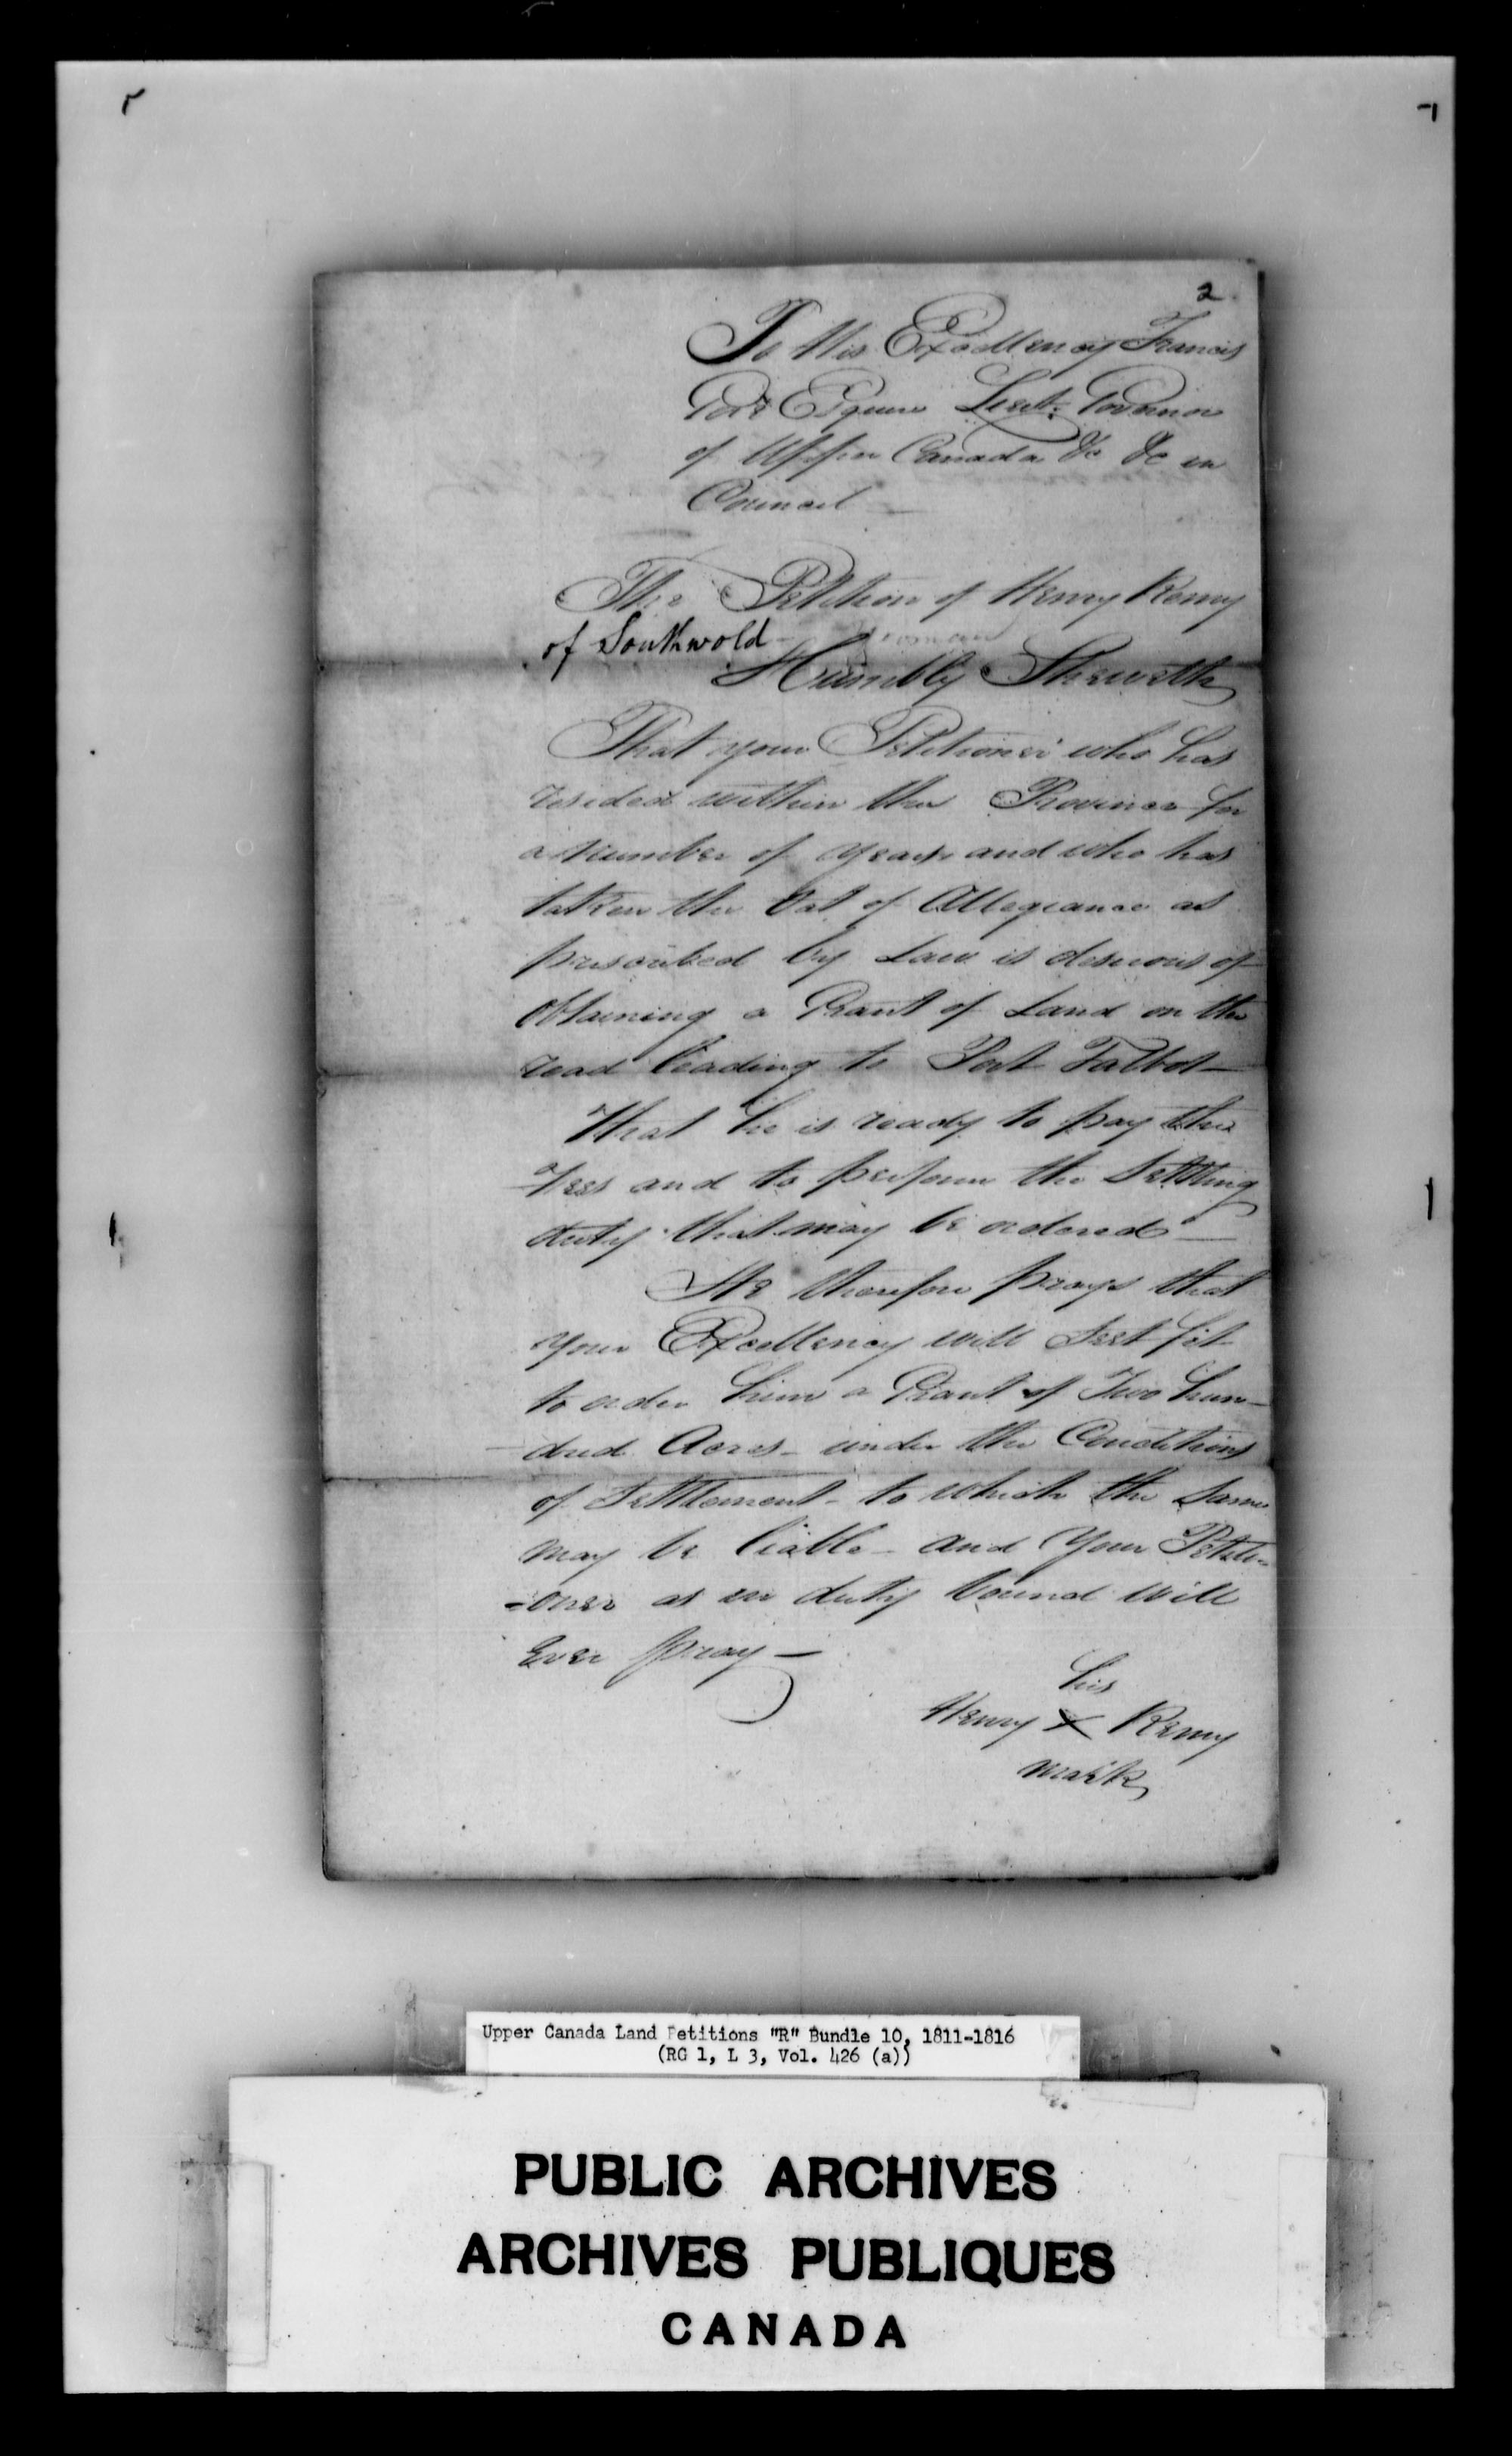 2
To His Excellency Francis
Gore Esquire Lieut. Governor
of Upper Canada &c &c in
Council —
The Petition of Henry Remy
of Southwold
Humbly Sheweth
That your Petitioner who has
resided within the Province for
a number of years and who has
taken the Oat of Allegiance as
prescribed by Law is desirous of
Obtaining a Grant of Land on the
road leading to Port Talbot —
That he is ready to pay the
Fees and to perform the Settling
duty that may be ordered —
He therefore prays that
your Excellency will seet fit
to order him a Grant of Two hun-
-dred Acres - under the Conditions
of Settlement - to which the same
may be liable - and Your Petiti-
-oner as in duty bound will
Ever pray —
his
Henry X Remy
mark
Upper Canada Land Petitions "R" Bundle 10, 1811-1816
(RG 1, L 3, Vol. 426 (a))
PUBLIC ARCHIVES
ARCHIVES PUBLIQUES
CANADA